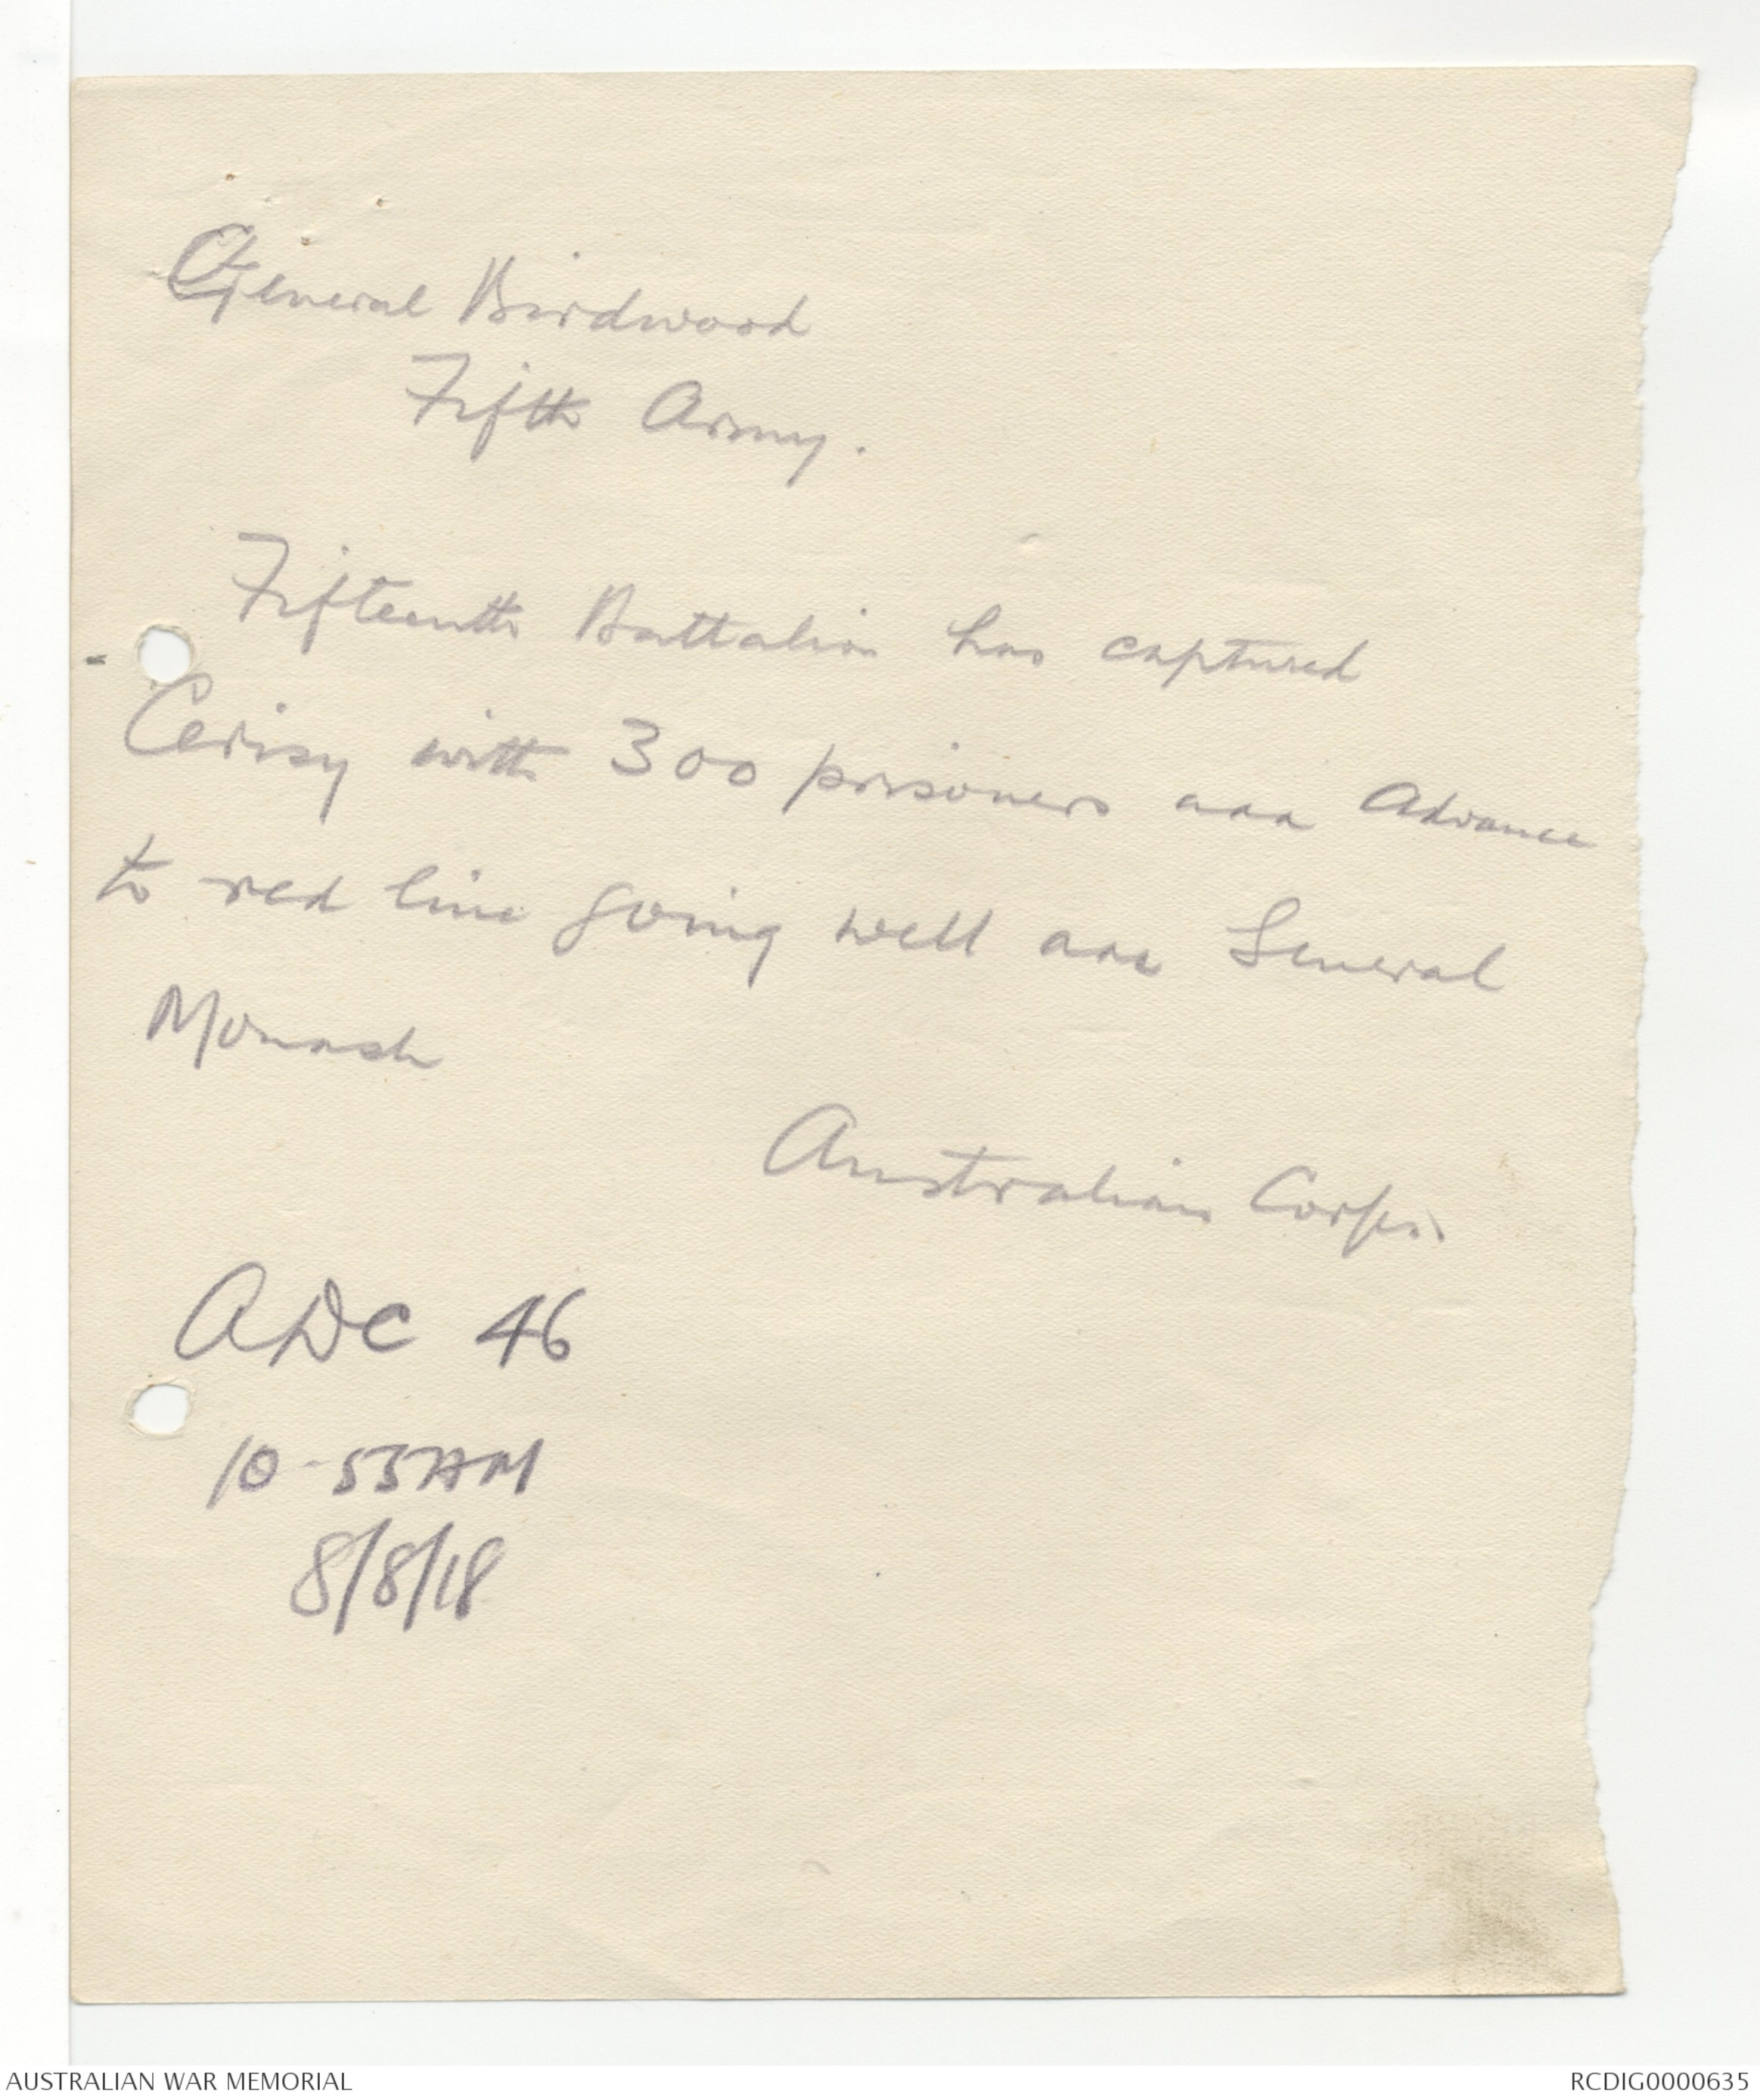 General Birdwood
Fifth Army.
Fifteenth Battalion has captured
Cerisy with 300 prisoners aaa Advance
to red line going well aaa General
Monash
Australian Corps.
ADC 46
10-55AM
8/8/18
AUSTRALIAN WAR MEMORIAL
RCDIG0000635